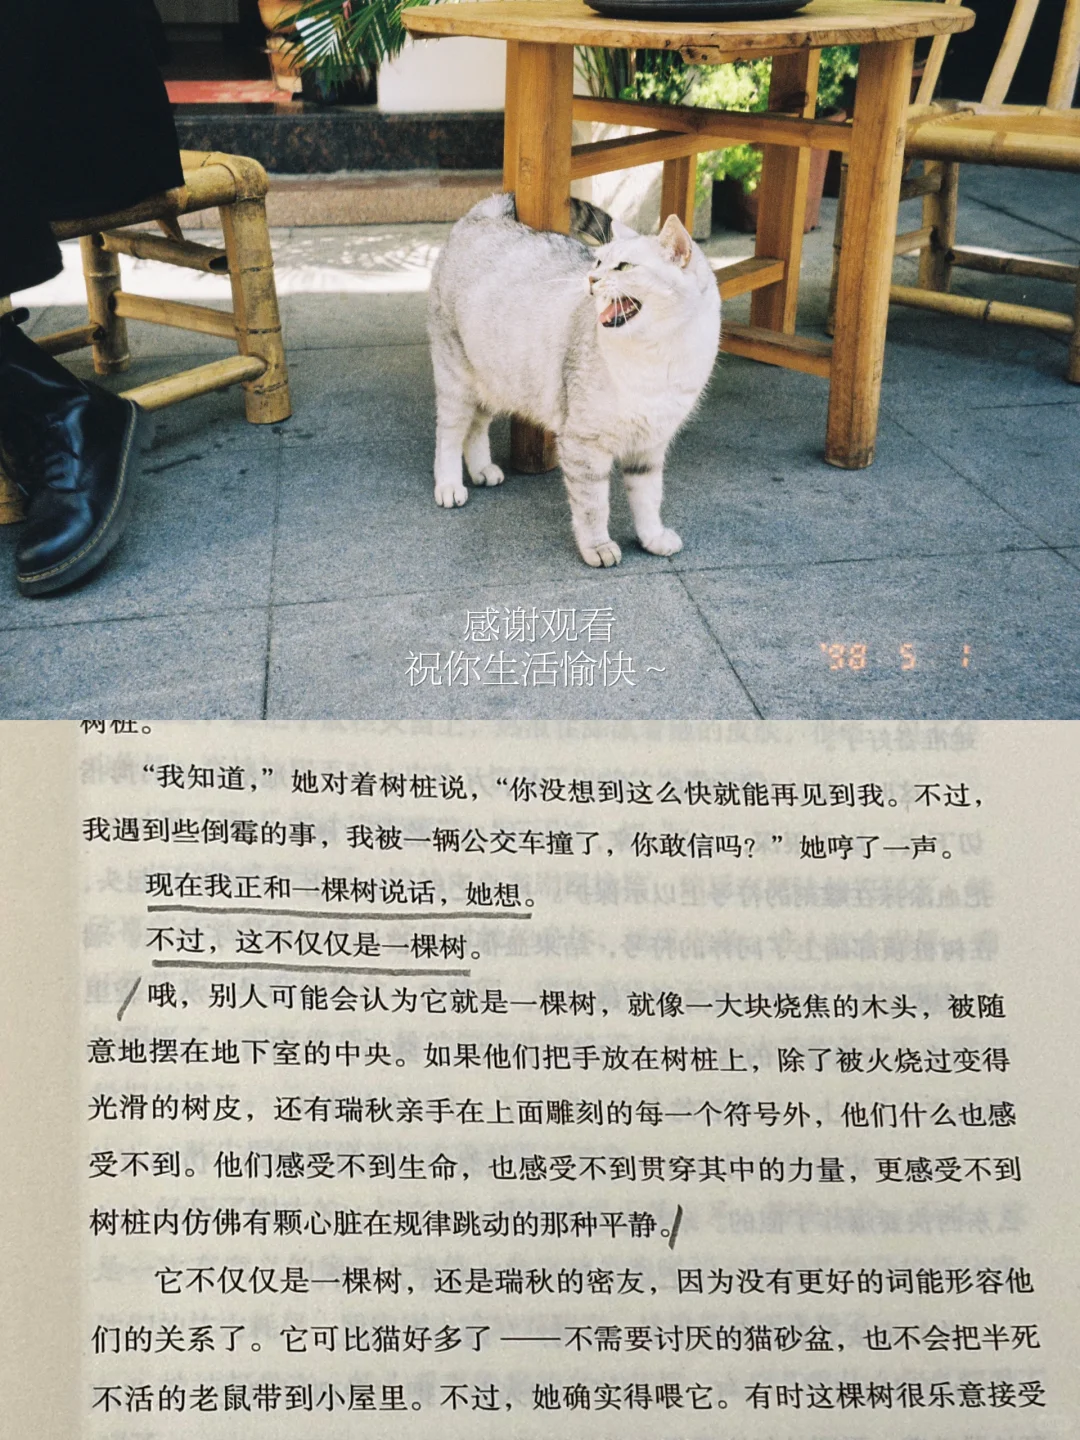 感谢观看
祝你生活愉快~
'98 5 1
树桩。
“我知道，”她对着树桩说，“你没想到这么快就能再见到我。不过，
我遇到些倒霉的事，我被一辆公交车撞了，你敢信吗？”她哼了一声。
现在我正和一棵树说话，她想。
不过，这不仅仅是一棵树。
哦，别人可能会认为它就是一棵树，就像一大块烧焦的木头，被随
意地摆在地下室的中央。如果他们把手放在树桩上，除了被火烧过变得
光滑的树皮，还有瑞秋亲手在上面雕刻的每一个符号外，他们什么也感
受不到。他们感受不到生命，也感受不到贯穿其中的力量，更感受不到
树桩内仿佛有颗心脏在规律跳动的那种平静。
它不仅仅是一棵树，还是瑞秋的密友，因为没有更好的词能形容他
们的关系了。它可比猫好多了——不需要讨厌的猫砂盆，也不会把半死
不活的老鼠带到小屋里。不过，她确实得喂它。有时这棵树很乐意接受